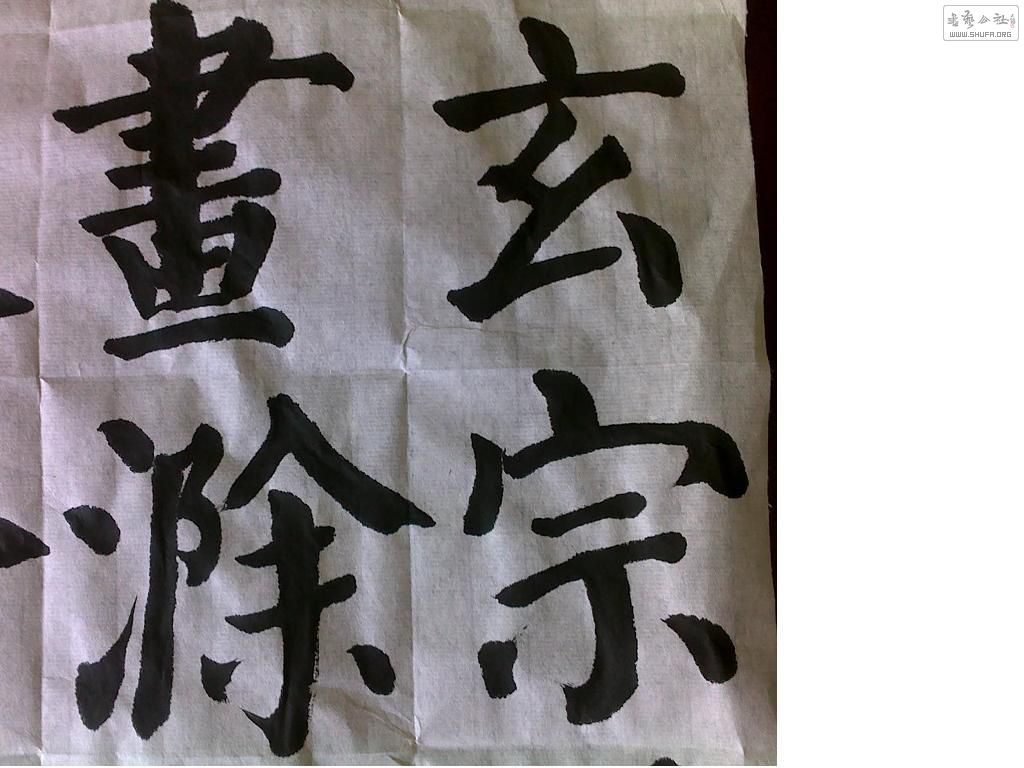 玄宗
畫滁
書藝公社
WWW.SHUFA.ORG